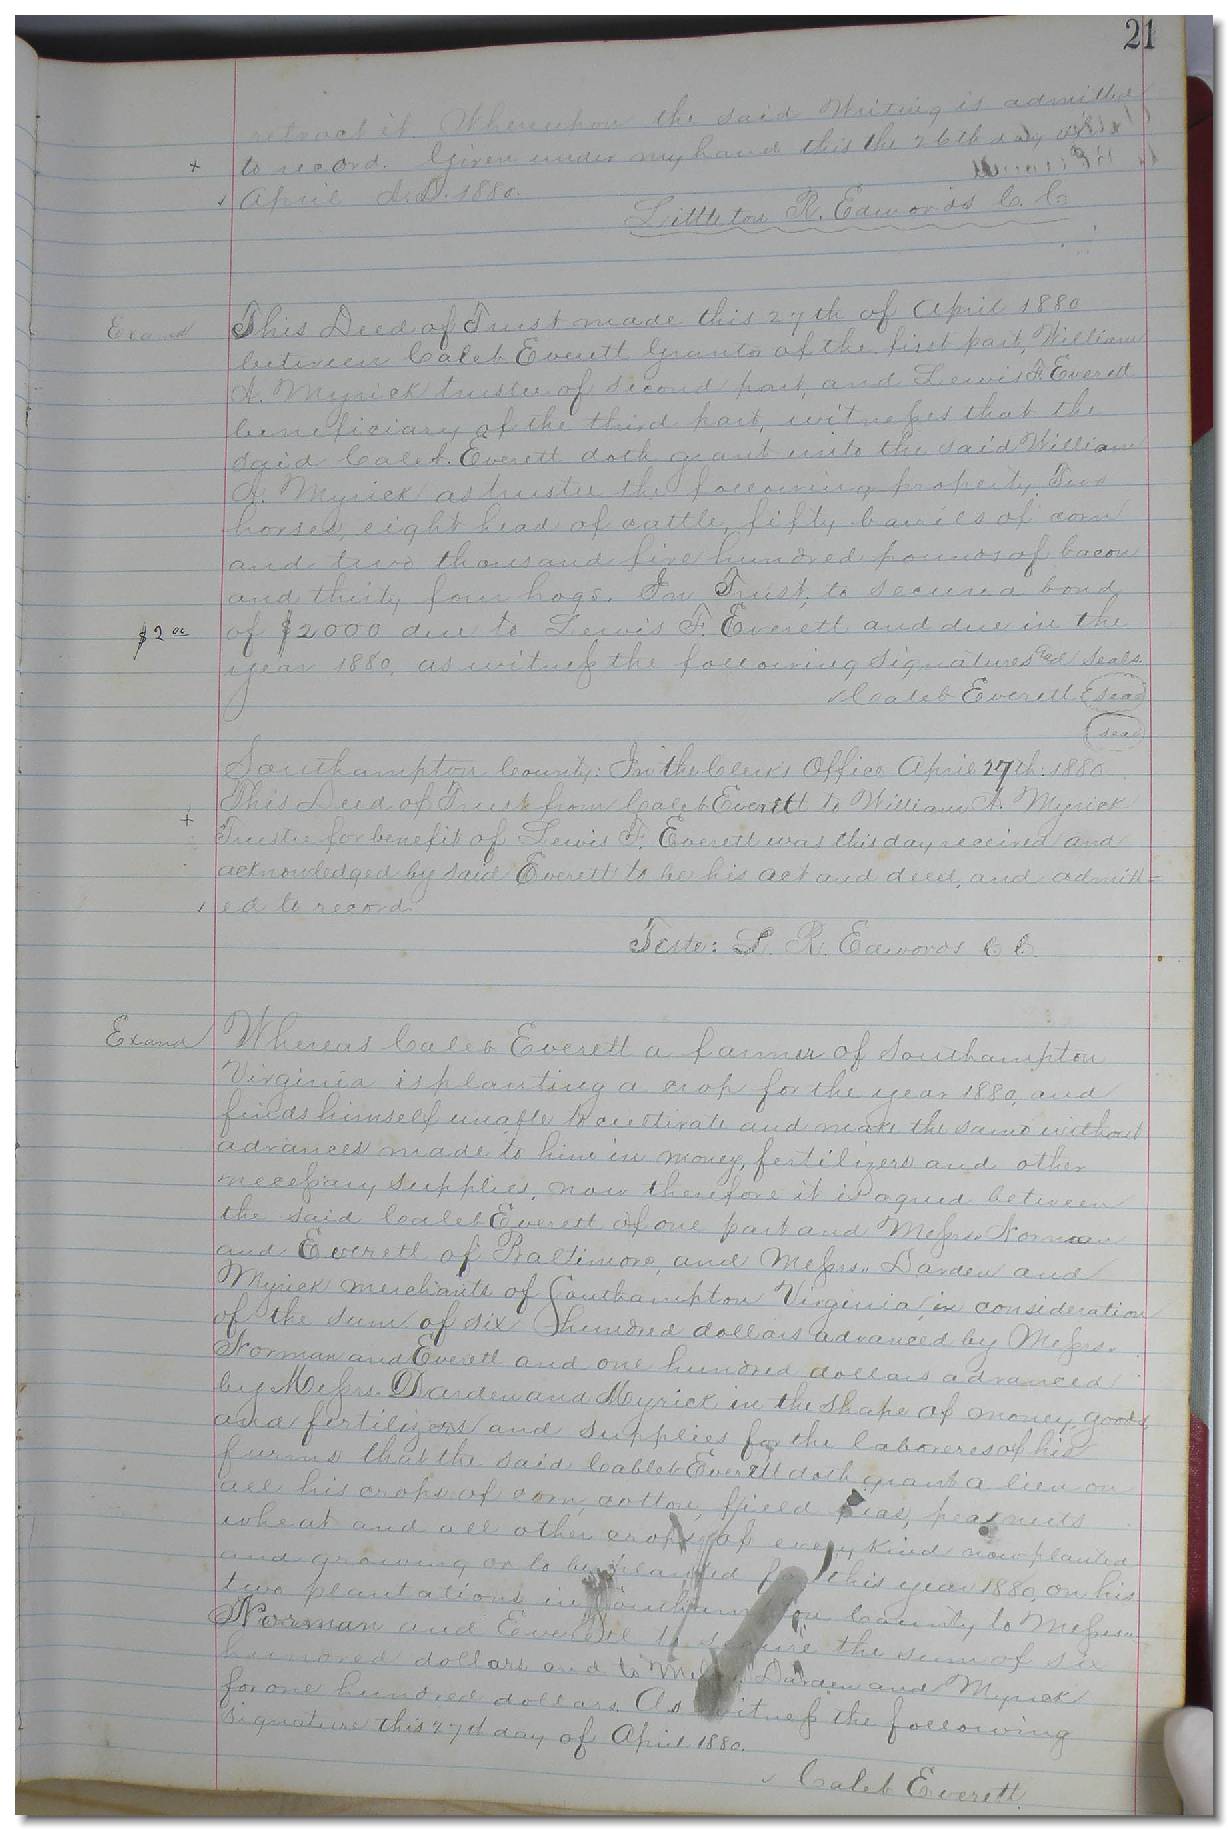 21
retract it. Whereupon the said Writing is admitted
to record. Given under my hand this the 26th day of
April A.D. 1880.
Littleton R. Edwards C. C.
Exand
This Deed of Trust made this 27th of April 1880
between Caleb Everett Grantor of the first part, William
A. Myrick trustee of second part, and Lewis F. Everett
beneficiary of the third part, witnesses that the
said Caleb. Everett doth grant unto the said William
A. Myrick as trustee the following property. Two
horses, eight head of cattle, fifty barrels of corn
and two thousand five hundred pounds of bacon
and thirty four hogs. In Trust, to secure a bond
$2 00
of $2000 due to Lewis F. Everett and due in the
year 1880, as witness the following signatures and seals.
Caleb Everett seal
seal
Southampton County: In the Clerk's Office April 27th. 1880
This Deed of Trust from Caleb Everett to William A. Myrick
Trustee for benefit of Lewis F. Everett was this day received and
acknowledged by said Everett to be his act and deed, and admitt=
ed to record.
Teste: L. R. Edwards C C.
Exand
Whereas Caleb Everett a farmer of Southampton
Virginia is planting a crop for the year 1880, and
finds himself unable to cultivate and make the same without
advances made to him in money, fertilizers and other
necessary supplies, now therefore it is agreed between
the said Caleb Everett of one part and Messrs. Norman
and Everett of Baltimore, and Messrs. Darden and
Myrick merchants of Southampton Virginia, in consideration
of the sum of six hundred dollars advanced by Messrs.
Norman and Everett and one hundred dollars advanced
by Messrs. Darden and Myrick in the shape of money, goods,
and fertilizers and supplies for the laborers of his
farms that the said Caleb Everett doth grant a lien on
all his crops of corn, cotton, field peas, peanuts
wheat and all other crops of every kind now planted
and growing or to be planted for this year 1880, on his
two plantations in Southampton County to Messrs.
Norman and Everett to secure the sum of six
hundred dollars and to Messrs. Darden and Myrick
for one hundred dollars. As witness the following
signature this 27th day of April 1880.
Caleb Everett.